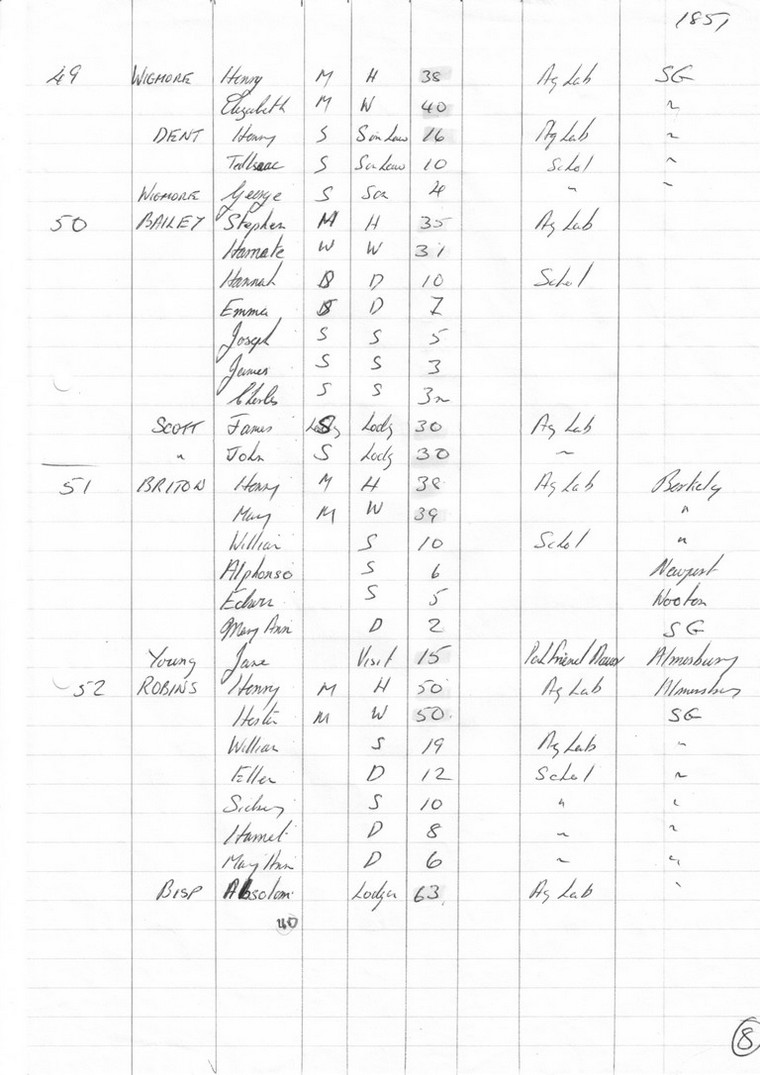 1851
49 WIGMORE Henry M H 38 Ag Lab SG
Elizabeth M W 40 "
DENT Henry S Son Law 16 Ag Lab "
S Son Law 10 Schol "
WIGMORE George S Son 4 " "
50 BAILEY Stephen M H 35 Ag Lab
W W 31
Hannah S D 10 Schol
Emma S D 7
Joseph S S 5
James S S 3
Charles S S 3m
SCOTT James S Lodg 30 Ag Lab
" John S Lodg 30 "
51 BRITON Henry M H 38 Ag Lab Berkeley
Mary M W 39 "
William S 10 Schol "
Alphonso S 6 Newport
Edwin S 5 Wooton
Mary Ann D 2 SG
Young Jane Visit 15 Almesbury
52 ROBINS Henry M H 50 Ag Lab Almesbury
Hester M W 50 SG
William S 19 Ag Lab "
Ellen D 12 Schol "
Sidney S 10 " "
Harriet D 8 " "
Mary Ann D 6 " "
BISP Absolom Lodger 63 Ag Lab "
40
8